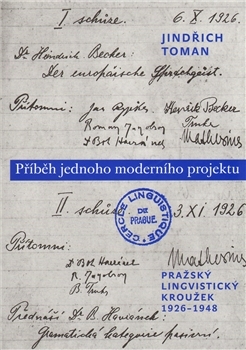 I schůze. 6. X. 1926.
JINDŘICH
TOMAN
Dr. Heinrich Becker:
Der europäische Sprachgeist.
Přítomni: Jan Rypka, Henrik Becker
Roman Jakobson Trnka
Dr Boh Havránek Mathesius
Příběh jednoho moderního projektu
II. schůze 3. XI. 1926
CERCLE LINGUISTIQUE
DE
PRAGUE
Přítomni:
Dr Boh Havránek Mathesius
R. Jakobson
B. Trnka
PRAŽSKÝ
LINGVISTICKÝ
KROUŽEK
1926–1948
Přednáší Dr. B. Havránek:
Gramatická kategorie pasivní.